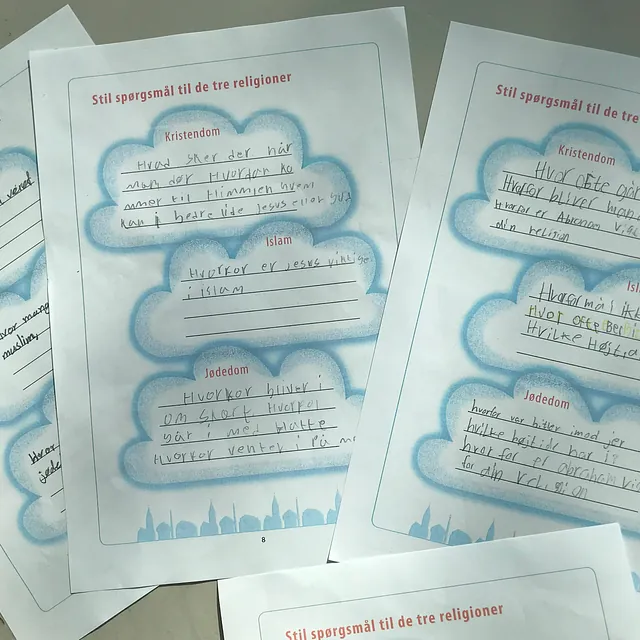 Stil spørgsmål til de tre religioner
Kristendom
Hvad sker der når
man dør Hvordan ko
mmer til Himmlen hvem
kan i bedre lide Jesus eller Gud
Islam
Hvorkor er Jesus viktige
i islam
Jødedom
Hvorkor bliver i
om skåret Hvorkor
går i med Hatte
Hvorkor venter i på
8
Stil spørgsmål til de tre
Kristendom
Hvor ofte
Hvorfor bliver man
Hvorfor er Abraham
din religion
Hvorfor må i ikke
Hvor ofte
Hvilke Højtie
Jødedom
hvorfor var hitler imod jer
hvilke højtider har i?
hvorfor er abraham
for din religion
muslim,
Stil spørgsmål til de tre religioner